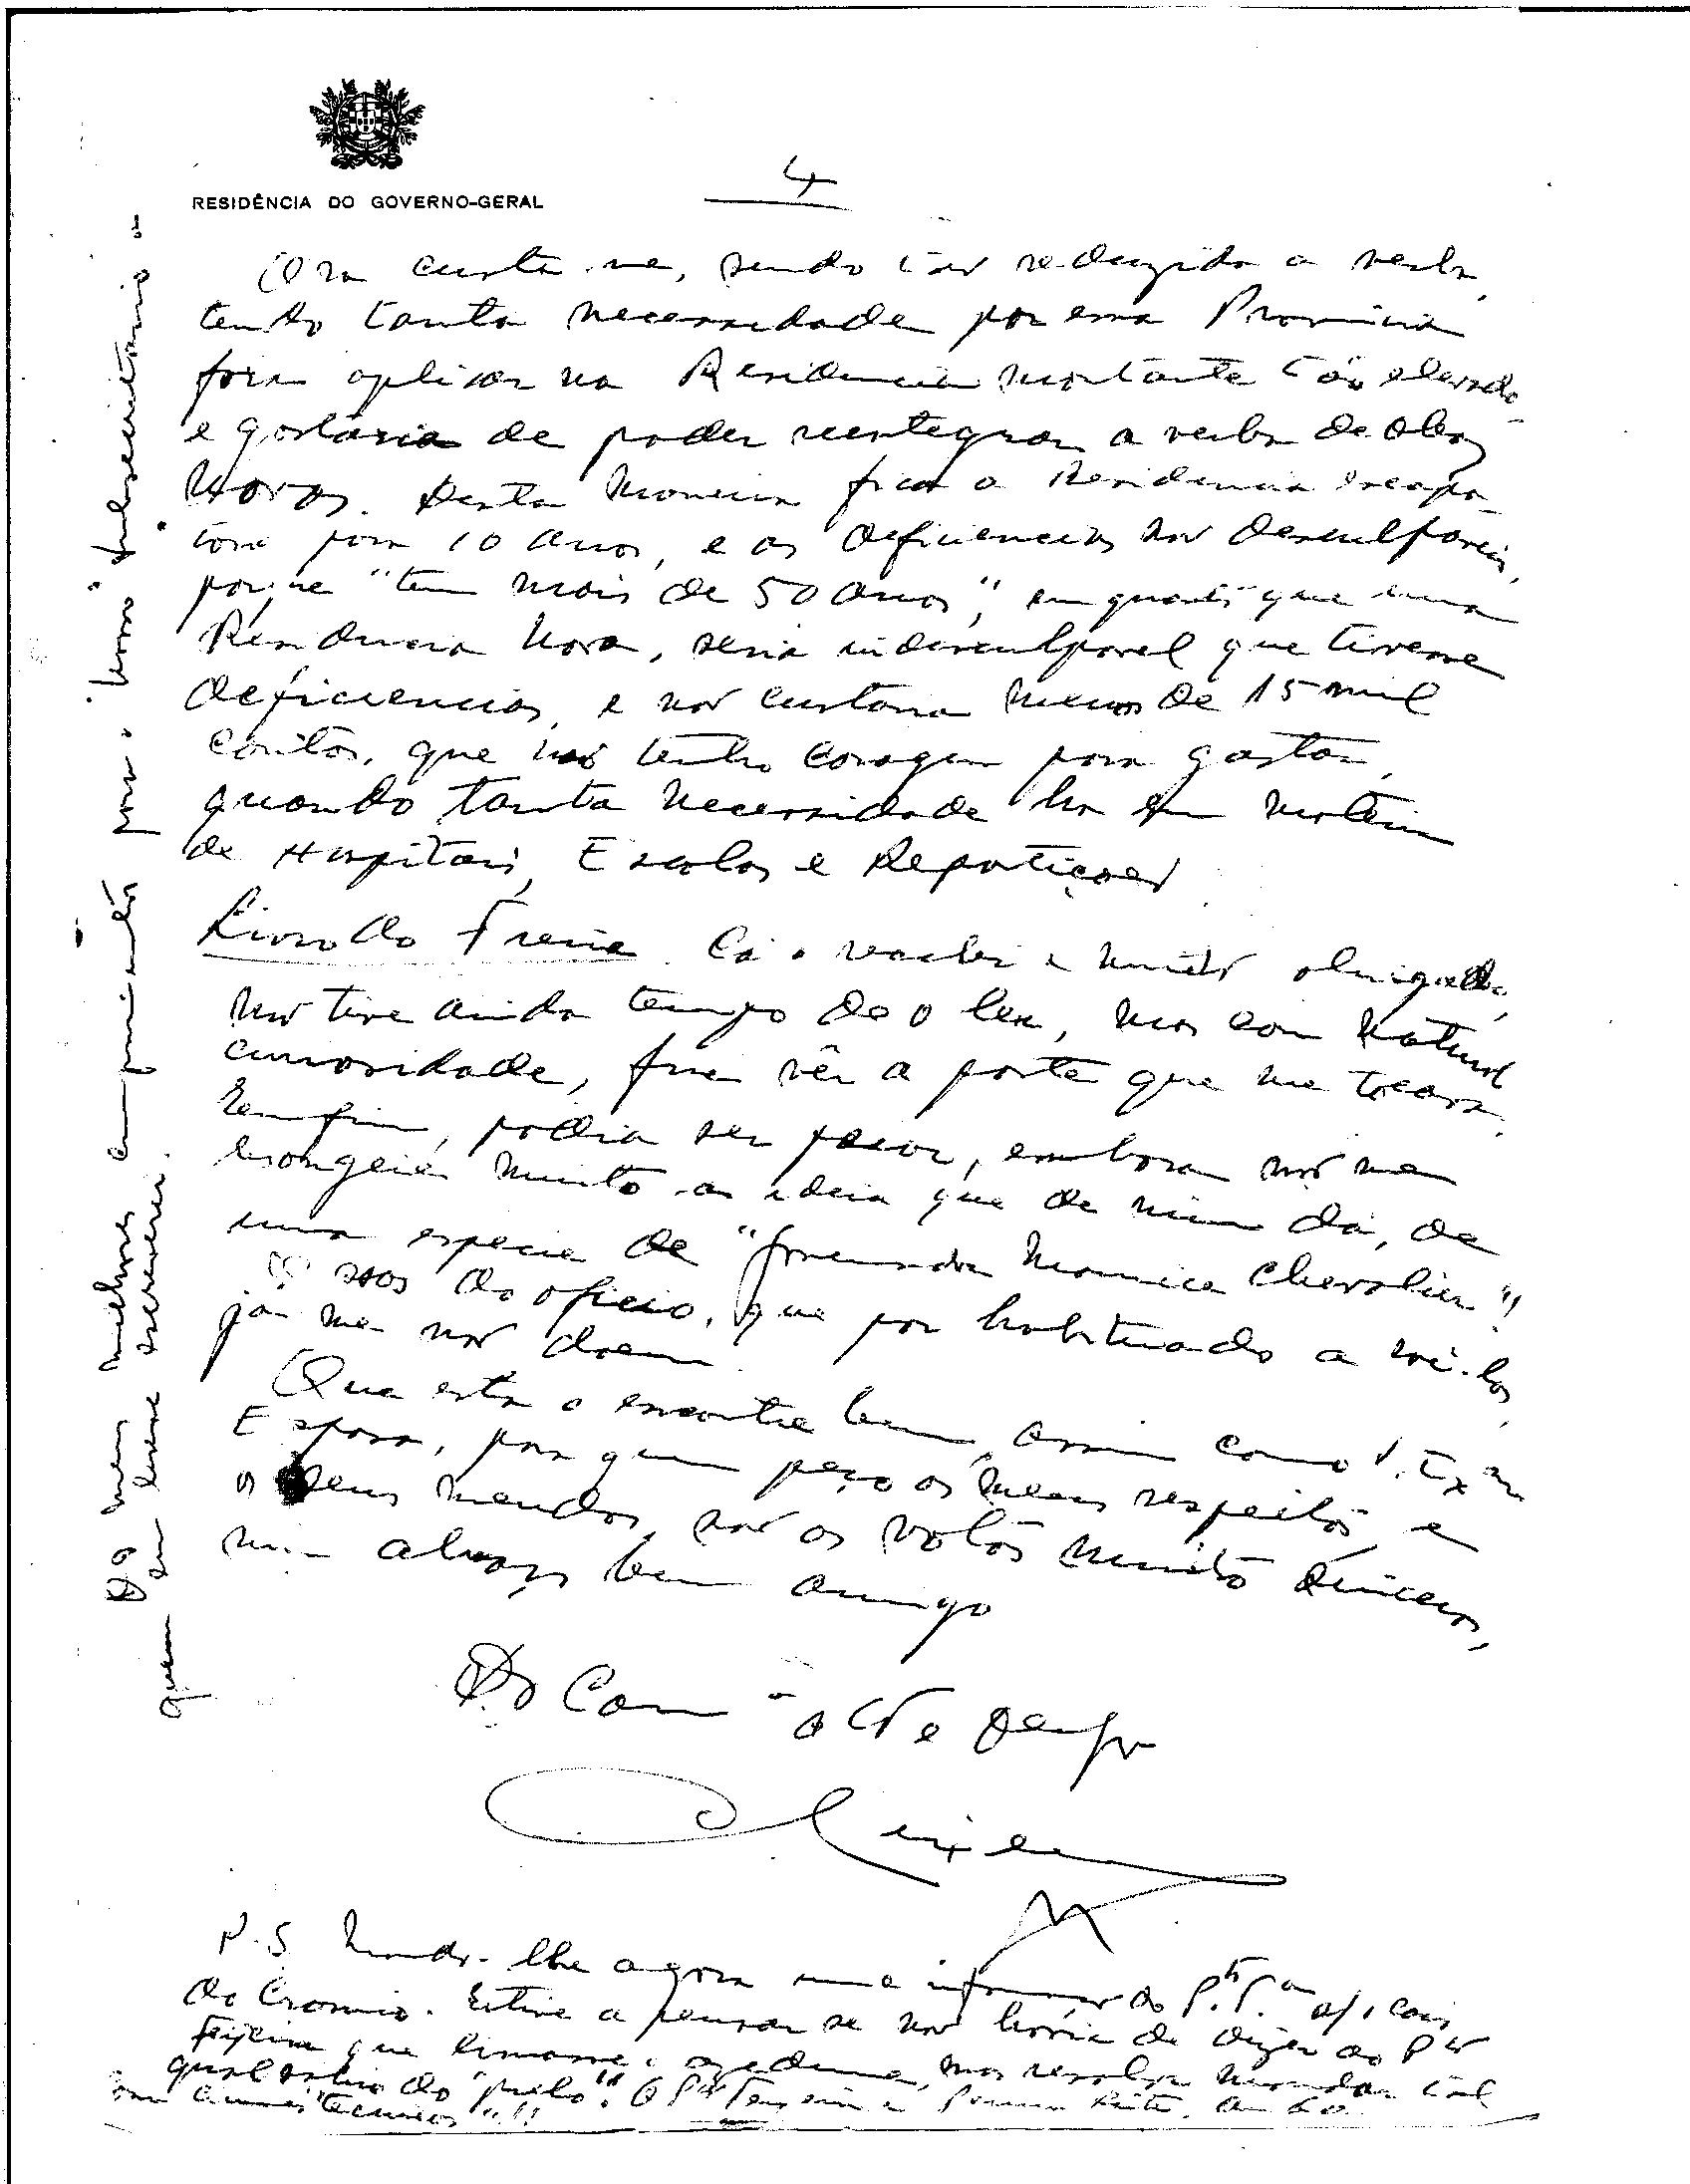 RESIDÊNCIA DO GOVERNO-GERAL
4
Ora custa-me, sendo tão reduzida a verba,
tendo tanta necessidade por essa Provincia
fora aplicar na Residencia montante tão elevado
e gostaria de poder reintegrar a verba de Obras
Novas. Desta maneira fica a Residencia
para 10 anos, e as deficiencias são desculpaveis,
porque "tem mais de 50 anos", enquanto que uma
Residencia Nova, seria indesculpavel que tivesse
deficiencias, e não custaria menos de 15 mil
contos, que não tenho coragem para gastar,
quando tanta necessidade ha em materia
de Hospitais, Escolas e Repartições
Livro do Freire. Cá o recebi e muito obrigado,
não tive ainda tempo de o ler, mas com natural
curiosidade, fui vêr a parte que me tocava.
Emfim, podia ser peor, embora não me
lisongeie muito a ideia que de mim dá, de
uma especie de "fornecedor Maurice Chevalier"!
São ossos do oficio, que por habituado a roê-los,
já me não doem.
Que esta o encontre bem, assim como V. Exma
Esposa, para quem peço os meus respeitos, e
os seus meudos, são os votos muito sinceros,
num abraço bem amigo
Do Cam. e
P.S. Mando-lhe agora uma
do Cromio. Estive a pensar se não havia de dizer ao
Teixeira que limasse o azedume, mas resolvi mandar tal
qual saiu do "prelo".
"tecnicos"!!
Os meus melhores cumprimentos para o "nosso" Subsecretario a
quem em breve escreverei.